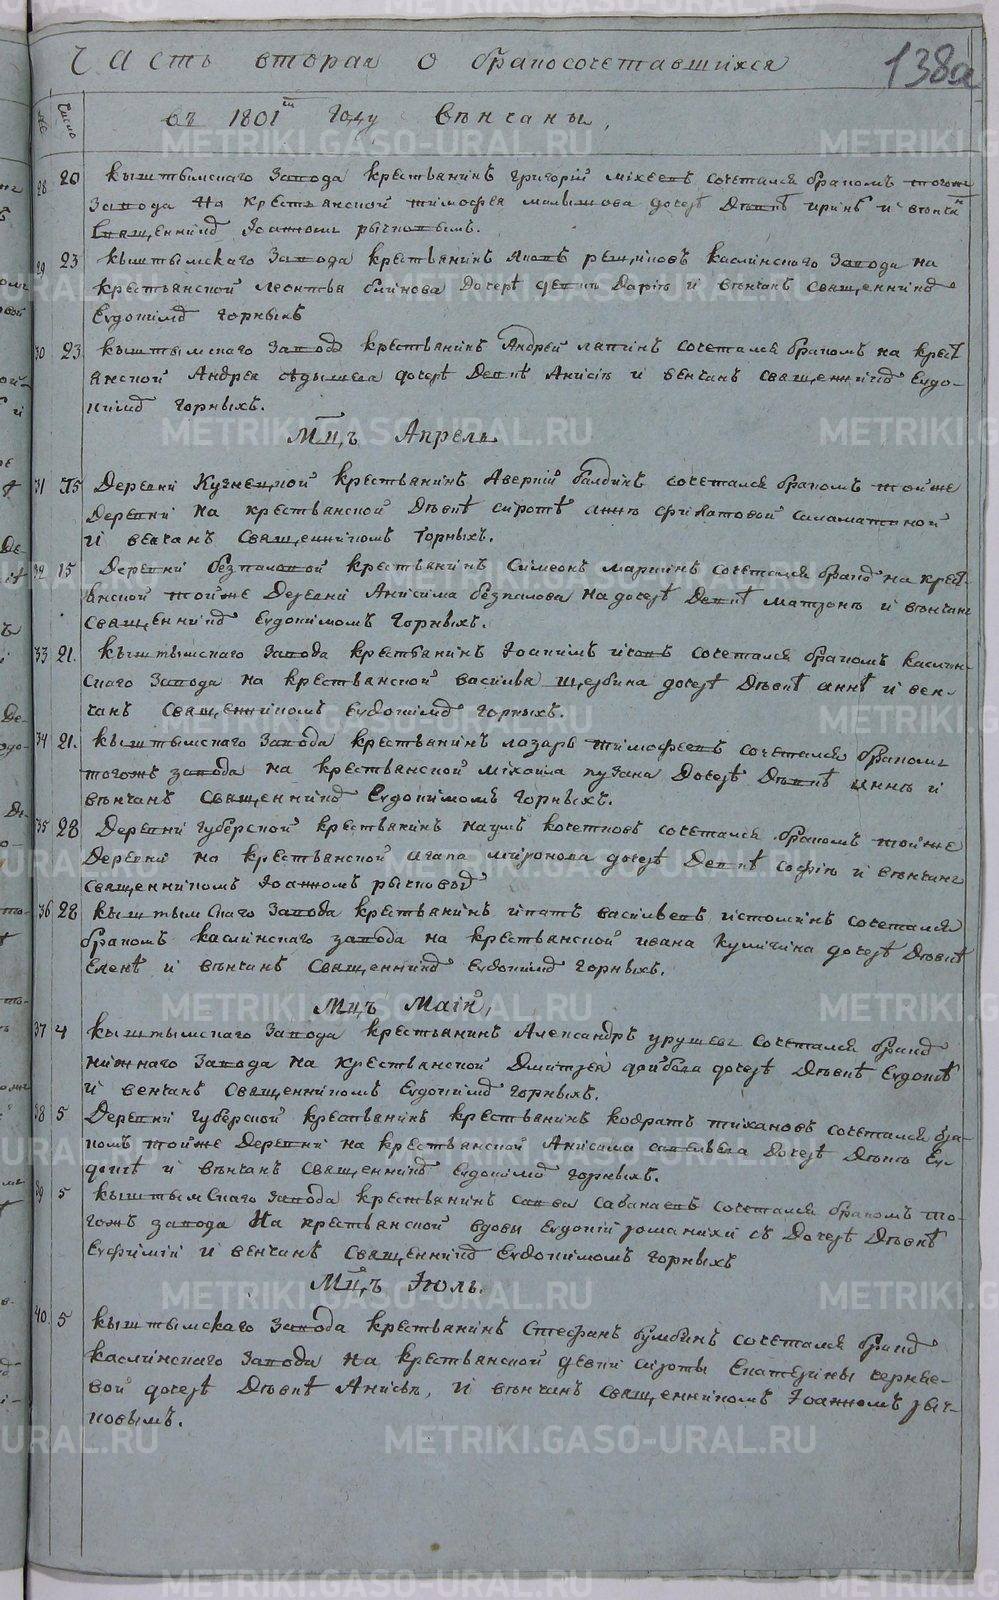 METRIKI.GASO-URAL.RU
Часть вторая о бракосочетавшихся
138а
Число
въ 1801м году венчаны,
28 20 кыштымскаго Завода крестьянинъ григорий михеевъ сочетался бракомъ тогожъ
Завода На крестьянской тимофея малышова дочерѣ Девкѣ иринѣ и венчан
Священникд Иоанномъ рычковымъ.
29 23 кыштымскаго Завода крестьянинъ решниковъ каслинскаго Завода на
крестьянской леонтья блинова дочерѣ девки Дарью и венчанъ священникд
Евдокимд горныхъ
30 23 кыштымскаго Заводд крестьянинъ Андрей лапинъ сочетался бракомъ на крест
янской Андрея седышева дочерѣ Девкѣ Анисью и венчанъ священникд Евдо-
кимд горныхъ.
Мцъ Апрель
31 15 Деревни Кузнецкой крестьянинъ Аверкий балдинъ сочетался бракомъ тойже
Деревни на крестьянской Девкѣ сиротѣ анне филатовой саламатиной
И венчанъ Священникомъ Горныхъ.
32 15 Деревни безпаловой крестьянинъ Симеонъ маркинъ сочетался бракд на крест-
янской тойже Деревни Анисима безпалова на дочерѣ Девкѣ матроне и венчанъ
священникд Евдокимомъ Горныхъ.
33 21. кыштымскаго Завода крестьянинъ Иоакимъ сочетался бракомъ каслин-
скаго Завода на крестьянской василья щербина дочерѣ Девкѣ аннѣ и вен-
чанъ Священникомъ Евдокимд Горныхъ.
34 21. кыштымскаго Завода крестьянинъ лазарь тимофеевъ сочетался бракомъ
тогожъ завода на крестьянской михаила пузана Дочерѣ Девкѣ и
венчанъ Священникд Евдокимомъ Горныхъ.
35 28 Деревни Губерской крестьянинъ наумъ кочетковъ сочетался бракомъ тойже
Деревни на крестьянской агапа миронова дочерѣ Девкѣ софью и венчанъ
священникомъ Иоанномъ рычковд
36 28 кыштымскаго Завода крестьянинъ ипатъ васильевъ истоминъ сочетался
бракомъ каслинскаго завода на крестьянской ивана Куличина дочерѣ Девкѣ
Еленѣ и венчанъ Священникд Евдокимд горныхъ.
Мцъ Маий,
37 4 кыштымскаго Завода крестьянинъ Александръ урушевъ сочетался бракд
нижнаго Завода на крестьянской Дмитрея дочерѣ Девкѣ Евдокиѣ
И венчанъ Священникомъ Евдокимд Горныхъ.
38 5 Деревни губерской крестьянинъ крестьянинъ кодратъ тихановъ сочетался бра-
комъ тойже Деревни на крестьянской Анисима савельева Дочерѣ Девкю Ев-
докиѣ и венчанъ Священникд Евдокимд Горныхъ.
39 5 кыштымскаго Завода крестьянинъ савва сабанаевъ сочетался бракомъ то-
гожъ завода На крестьянской вдовы Евдокии романихи съ Дочерѣ Девкѣ
Евфимии и венчанъ Священникд Евдокимомъ горныхъ
Мцъ Июль.
40. 5 кыштымскаго Завода крестьянинъ Стефанъ бумбинъ сочетался бракд
каслинскаго Завода на крестьянской девки сироты Екатерины черняе-
вой дочерѣ Девкѣ Анисьѣ, и венчанъ священникомъ Иоанномъ рыч-
ковымъ.